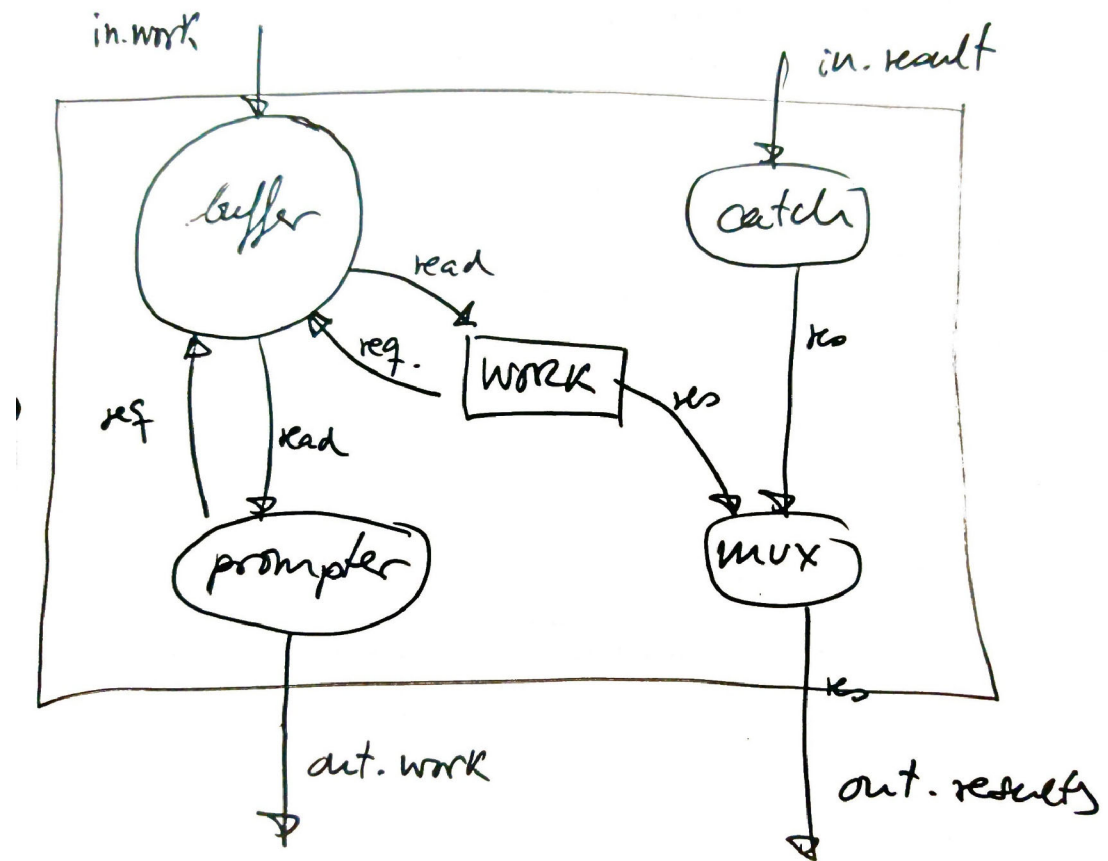 in.work
in.result
buffer
catch
read
res
req.
WORK
res
req
read
prompter
mux
res
out.work
out.results